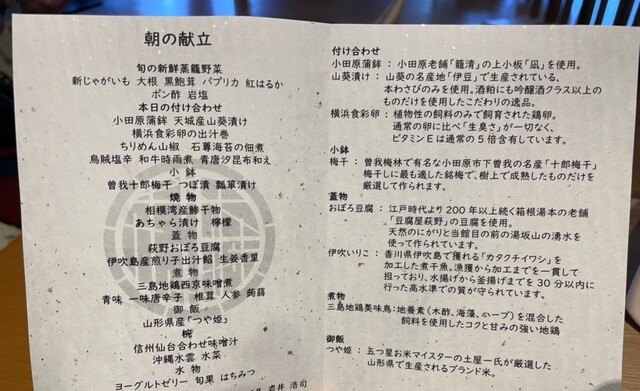 朝の献立
旬の新鮮蒸籠野菜
新じゃがいも 大根 黒鮑茸 パプリカ 紅はるか
ポン酢 岩塩
本日の付け合わせ
小田原蒲鉾 天城産山葵漬け
横浜食彩卵の出汁巻
ちりめん山椒 石蓴海苔の佃煮
烏賊塩辛 和牛時雨煮 青唐汐昆布和え
小鉢
曽我十郎梅干 つぼ漬 瓢箪漬け
焼物
相模湾産鯵干物
あちゃら漬け 檸檬
蓋物
萩野おぼろ豆腐
伊吹島産煎り子出汁餡 生姜香里
煮物
三島地鶏西京味噌煮
青味 一味唐辛子 椎茸 人参 蒟蒻
御飯
山形県産「つや姫」
椀
信州仙台合わせ味噌汁
沖縄水雲 水菜
水物
ヨーグルトゼリー 旬果 はちみつ
岩井 浩司
付け合わせ
小田原蒲鉾：小田原老舗「籠清」の上小板「凪」を使用。
山葵漬け：山葵の名産地「伊豆」で生産されている、
本わさびのみを使用。酒粕にも吟醸酒グラス以上の
ものだけを使用したこだわりの逸品。
横浜食彩卵：植物性の飼料のみで飼育された鶏卵。
通常の卵に比べ「生臭さ」が一切なく、
ビタミンEは通常の5倍含有しています。
小鉢
梅干：曽我梅林で有名な小田原市下曽我の名産「十郎梅干」
梅干しに最も適した銘梅で、樹上で成熟したものだけを
厳選して作られます。
蓋物
おぼろ豆腐：江戸時代より200年以上続く箱根湯本の老舗
「豆腐屋萩野」の豆腐を使用。
天然のにがりと当館目の前の湯坂山の湧水を
使って作られています。
伊吹いりこ：香川県伊吹島で獲れる「カタクチイワシ」を
加工した煮干魚。漁獲から加工までを一貫して
担っており、水揚げから釜揚げまでを30分以内に
行った高水準での質が守られています。
煮物
三島地鶏美味鳥：地養素(木酢、海藻、ハーブ)を混合した
飼料を使用したコクと甘みの強い地鶏
御飯
つや姫：五つ星お米マイスターの土屋一氏が厳選した
山形県で生産されるブランド米。